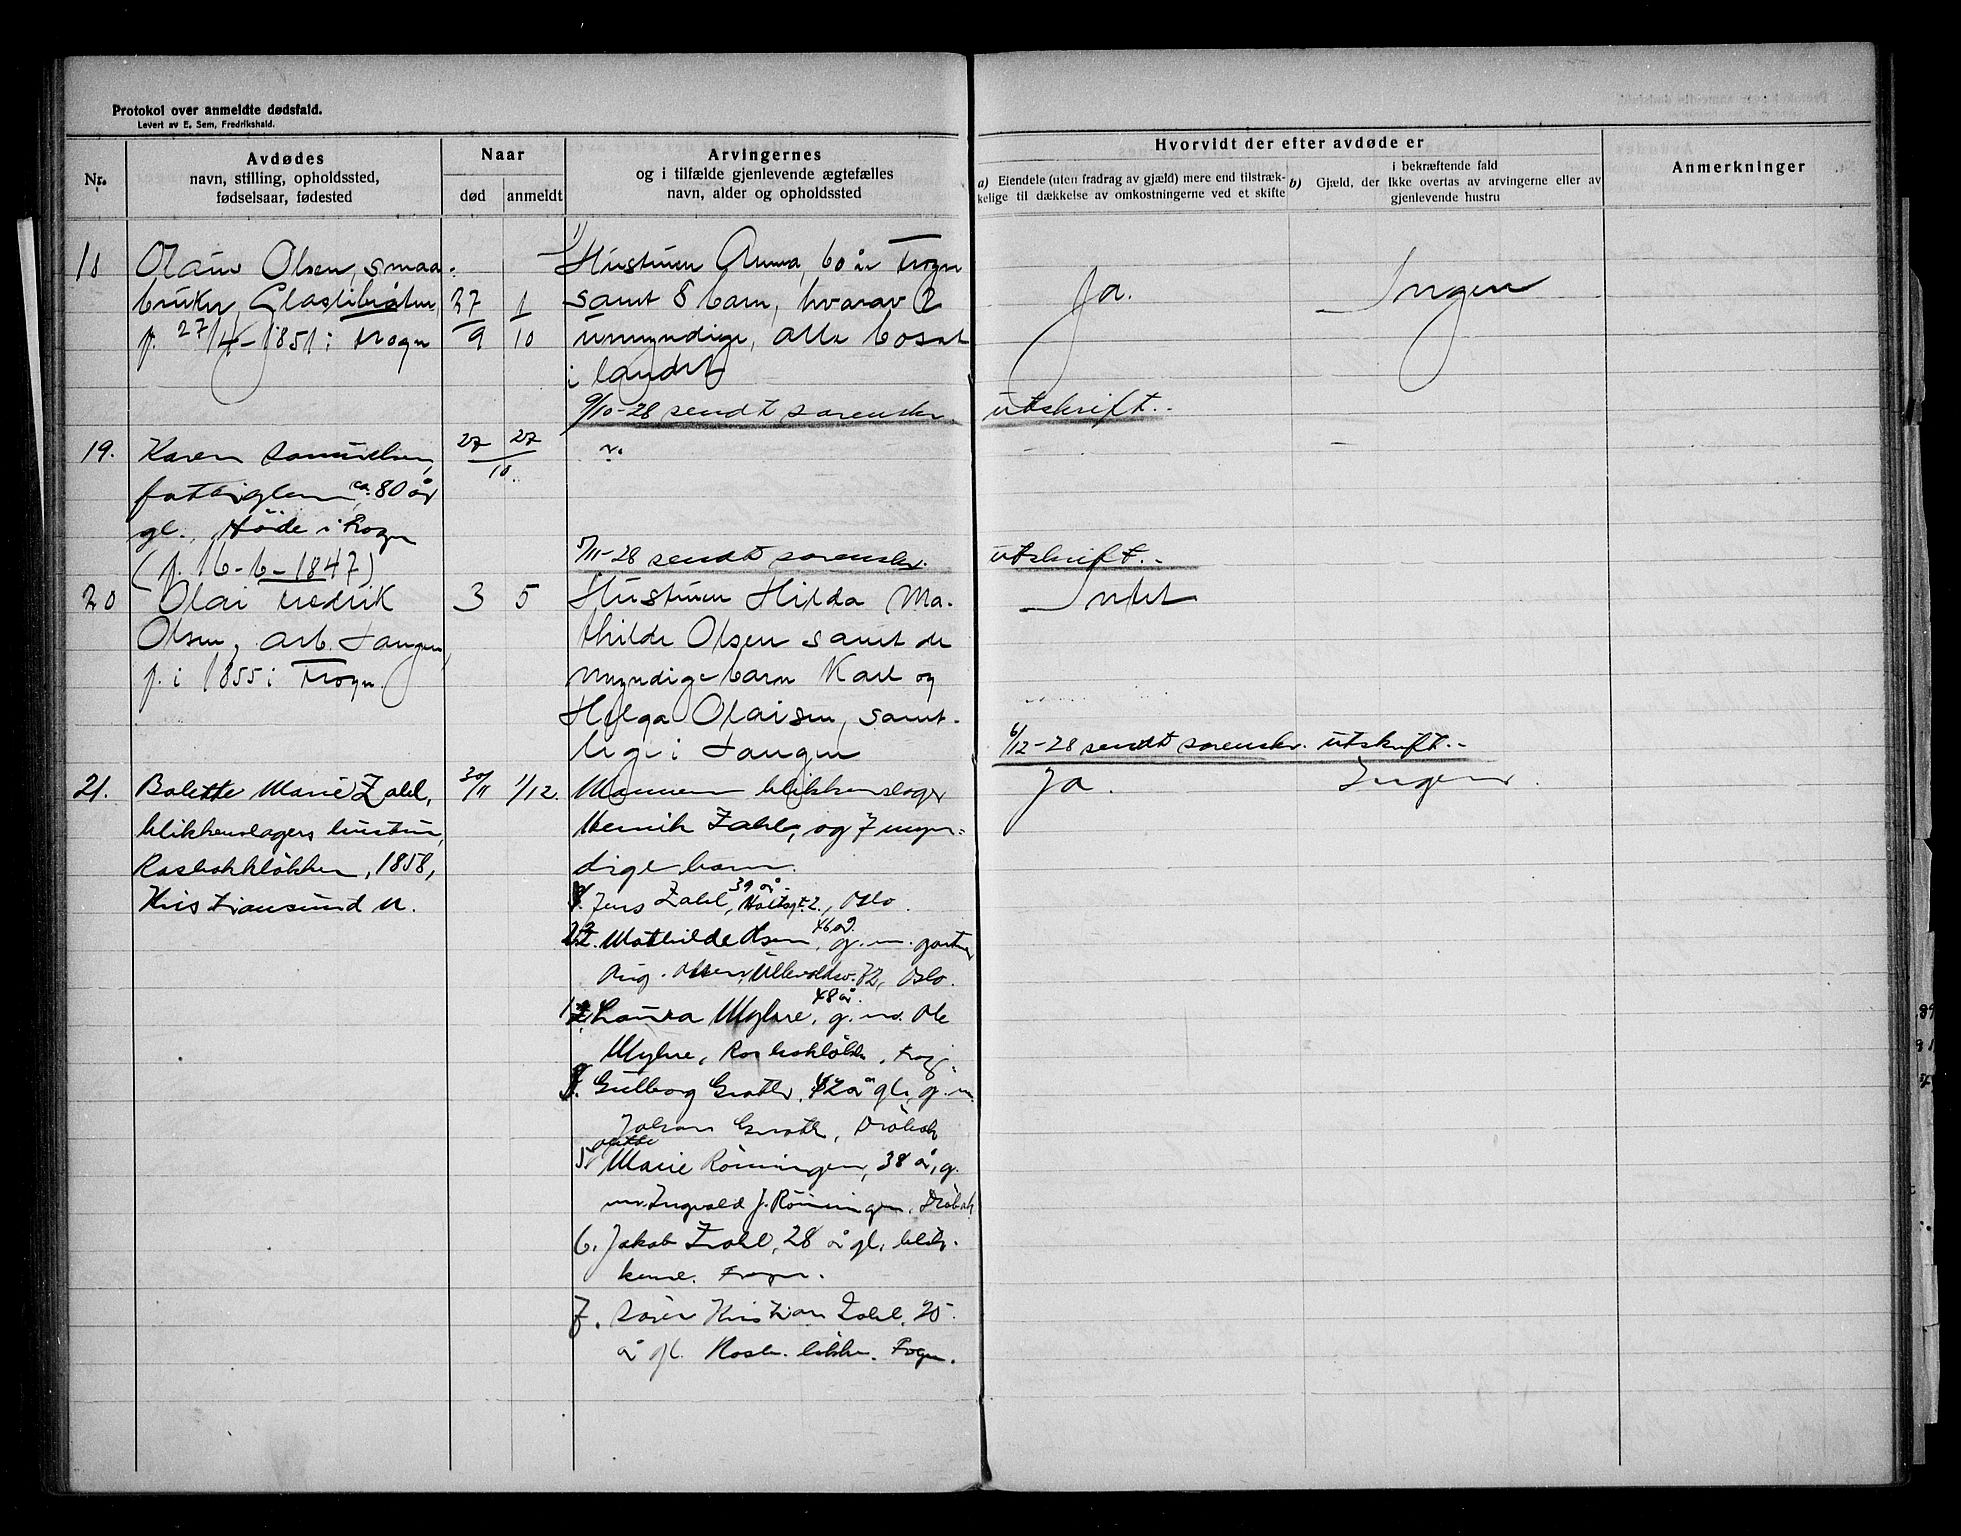 Protokol over anmeldte dødsfald.
Levert av E. Sem, Fredrikshald.
Nr.
Avdødes
navn, stilling, opholdssted,
fødselsaar, fødested
Naar
død
anmeldt
Arvingernes
og i tilfælde gjenlevende ægtefælles
navn, alder og opholdssted
Hvorvidt der efter avdøde er
a) Eiendele (uten fradrag av gjæld) mere end tilstræk-
kelige til dækkelse av omkostningerne ved et skifte
b) Gjæld, der i bekræftende fald
ikke overtas av arvingerne eller av
gjenlevende hustru
Anmerkninger
18
Olaus Olsen, smaa-
bruker, 
f. 27/4-1851 i Frogn
27/9
1/10
Hustruen Anna, 60 år Frogn
samt 8 barn, hvorav 2
umyndige, alle bosat
i landet
Ja.
Ingen
9/10-28 sendt sorenskr. utskrift.-
19.
Karen Samuelsen,
fattiglem, ca. 80 år
gl., Høide i Frogn
(f. 16-6-1847)
27 27
10.
5/11-28 sendt sorenskr. utskrift.-
20
Olai Fredrik
Olsen, arb. Tangen,
f. i 1855 i Frogn
3
5
Hustruen Hilda Ma-
thilde Olsen samt de
myndige barn Karl og
Helga Olaisen, samt-
lige i Tangen
Intet
6/12-28 sendt sorenskr. utskrift.-
21.
Bolette Marie Zahl,
blikkenslagers hustru,
1858,
Kristiansund N.
30/11
1/12.
Mannen blikkenslager
Henrik Zahl, og 7 myn-
dige barn.
Ja.
Ingen.
Jens Zahl, 39 år, Holtegt. 2, Oslo.
2. Mathilde Olsen, 46 år, g. m. gartner
Aug. Olsen, Ullevoldsv. 72, Oslo.
1. Laura Myhre, 48 år. g. m. Ole
Myhre, Frogn.
Gulborg 42 år gl., g. m.
Johan Drøbak
5. Marie Rønningen, 38 år, g.
m. Ingvald J. Rønningen, Drøbak
6. Jakob Zahl, 28 år gl. blik-
kensl. Frogn.
7. Søren Kristian Zahl, 25
år gl. Frogn.